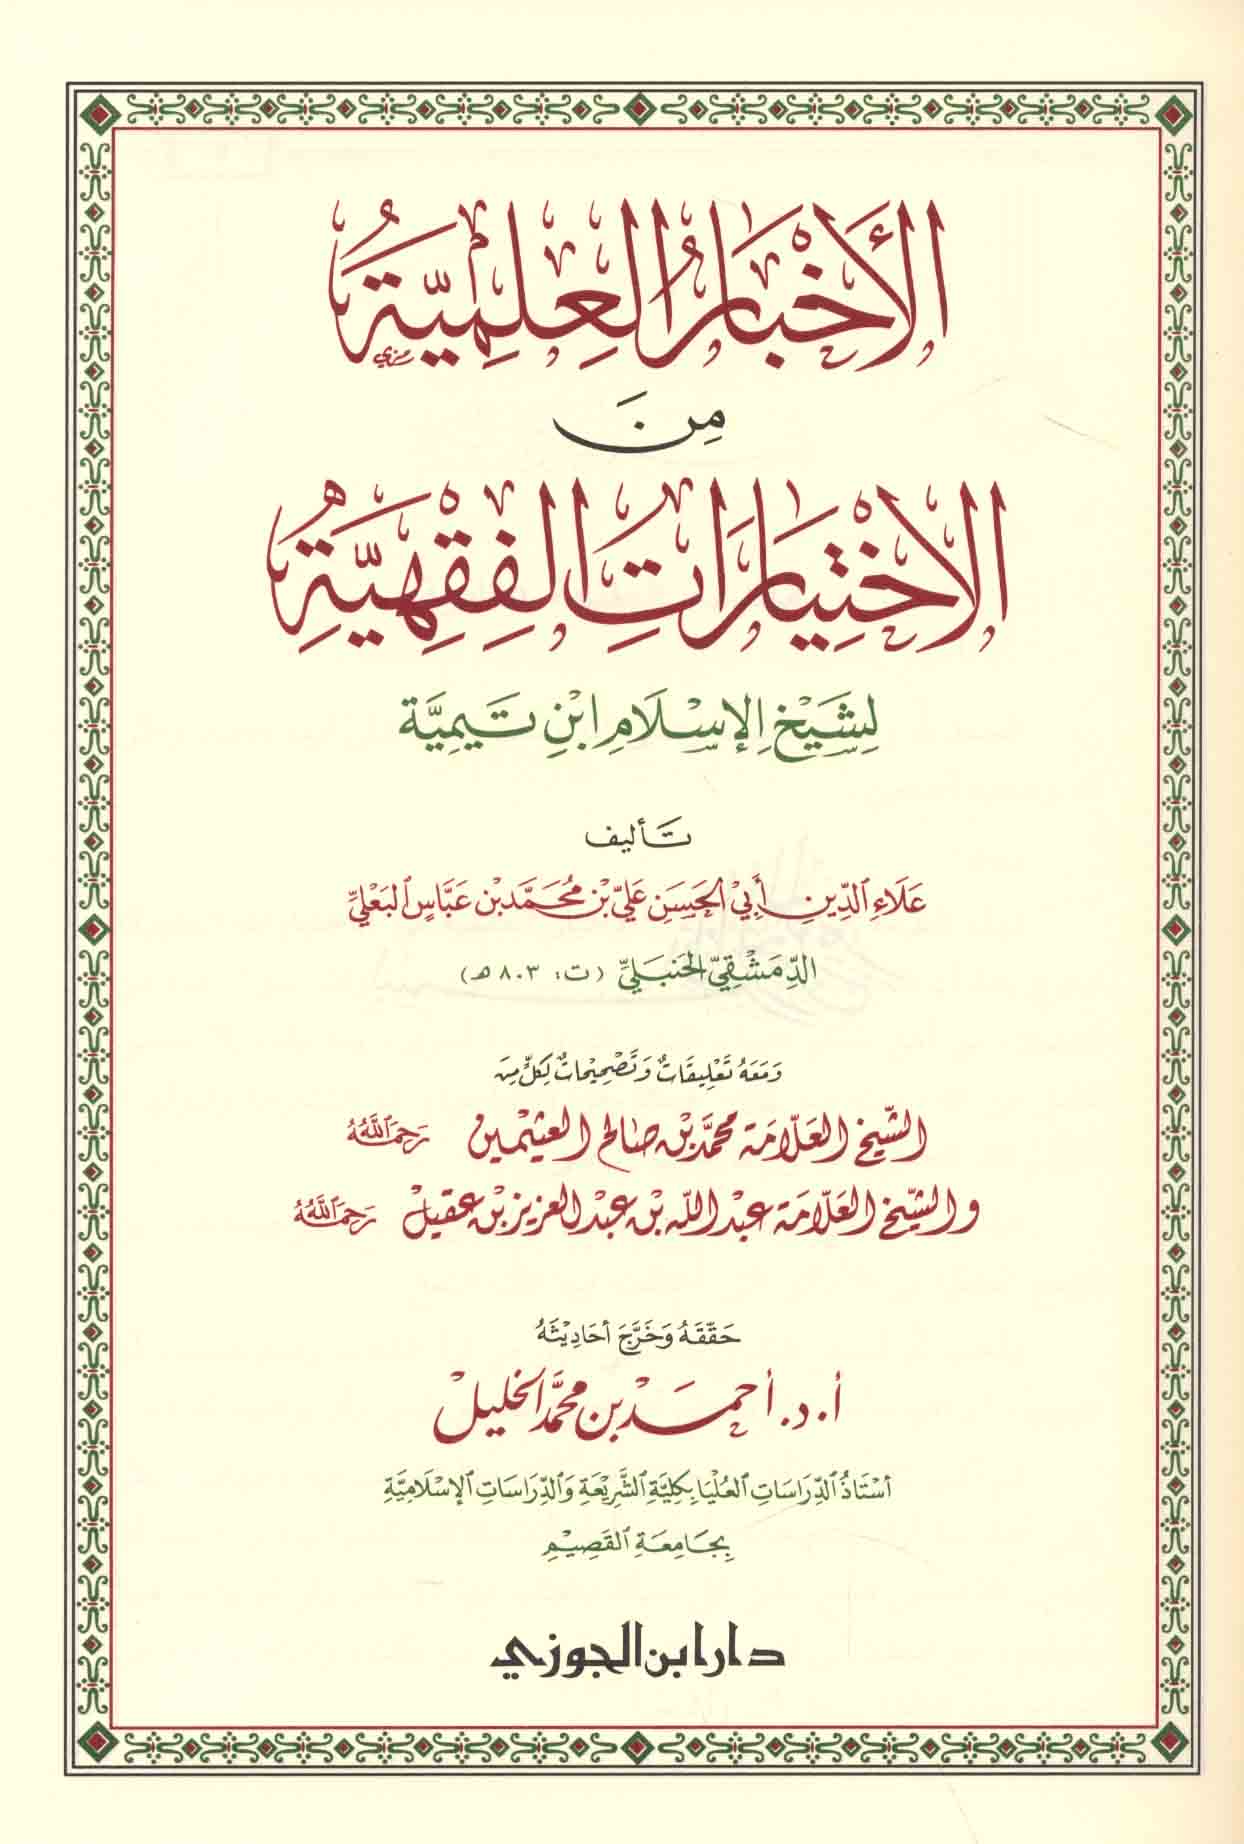 الأَخْبَارُ العِلْمِيَّةُ
مِنَ
الاخْتِيَارَاتِ الفِقْهِيَّةِ
لِشَيْخِ الإِسْلَامِ ابْنِ تَيْمِيَّة
تَأليف
عَلَاءِ الدِّينِ أَبِي الحَسَنِ عَلِيِّ بْنِ مُحَمَّدِ بْنِ عَبَّاسٍ البَعْلِيِّ
الدِّمَشْقِيِّ الحَنبَلِيِّ (ت: ٨٠٣ هـ)
وَمَعَهُ تَعْلِيقَاتٌ وَتَصْحِيحَاتٌ لِكُلٍّ مِنَ
الشَّيْخِ العَلَّامَة محمَّد بْن صَالح العثيْمين رَحِمَهُ اللَّهُ
وَالشَّيْخِ العَلَّامَة عبْد الله بْن عبْد العزيز بْن عقيل رَحِمَهُ اللَّهُ
حَقَّقَهُ وَخَرَّجَ أحَادِيْثَهُ
أ. د. أحمَد بْن محمَّد الخليلْ
أسْتَاذُ الدِّرَاسَاتِ العُلْيَا بِكلِيَّةِ الشَّرِيْعَةِ وَالدِّرَاسَاتِ الإسْلَامِيَّةِ
بِجَامِعَةِ القَصِيْمِ
دار ابن الجوزي